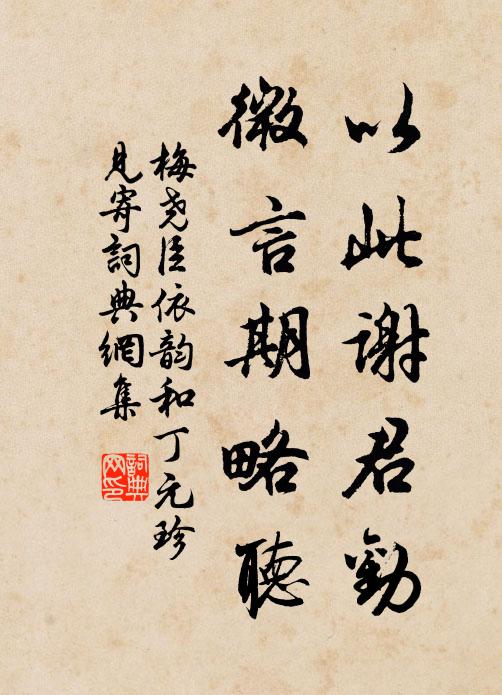 以此謝君勤
微言期略聽
梅尧臣依韵和丁元珍
見寄詞典網集
詞典
网印